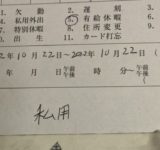 1. 欠勤 2. 遅刻 3.
4. 私用外出 5. 有給休暇 6.
7. 特別休暇 8. 住所変更 9.
10. 出生 11. カード打忘
2年10月22日～2022年10月22日(
日 午前 午後 時 分～ 午前 午後
私用